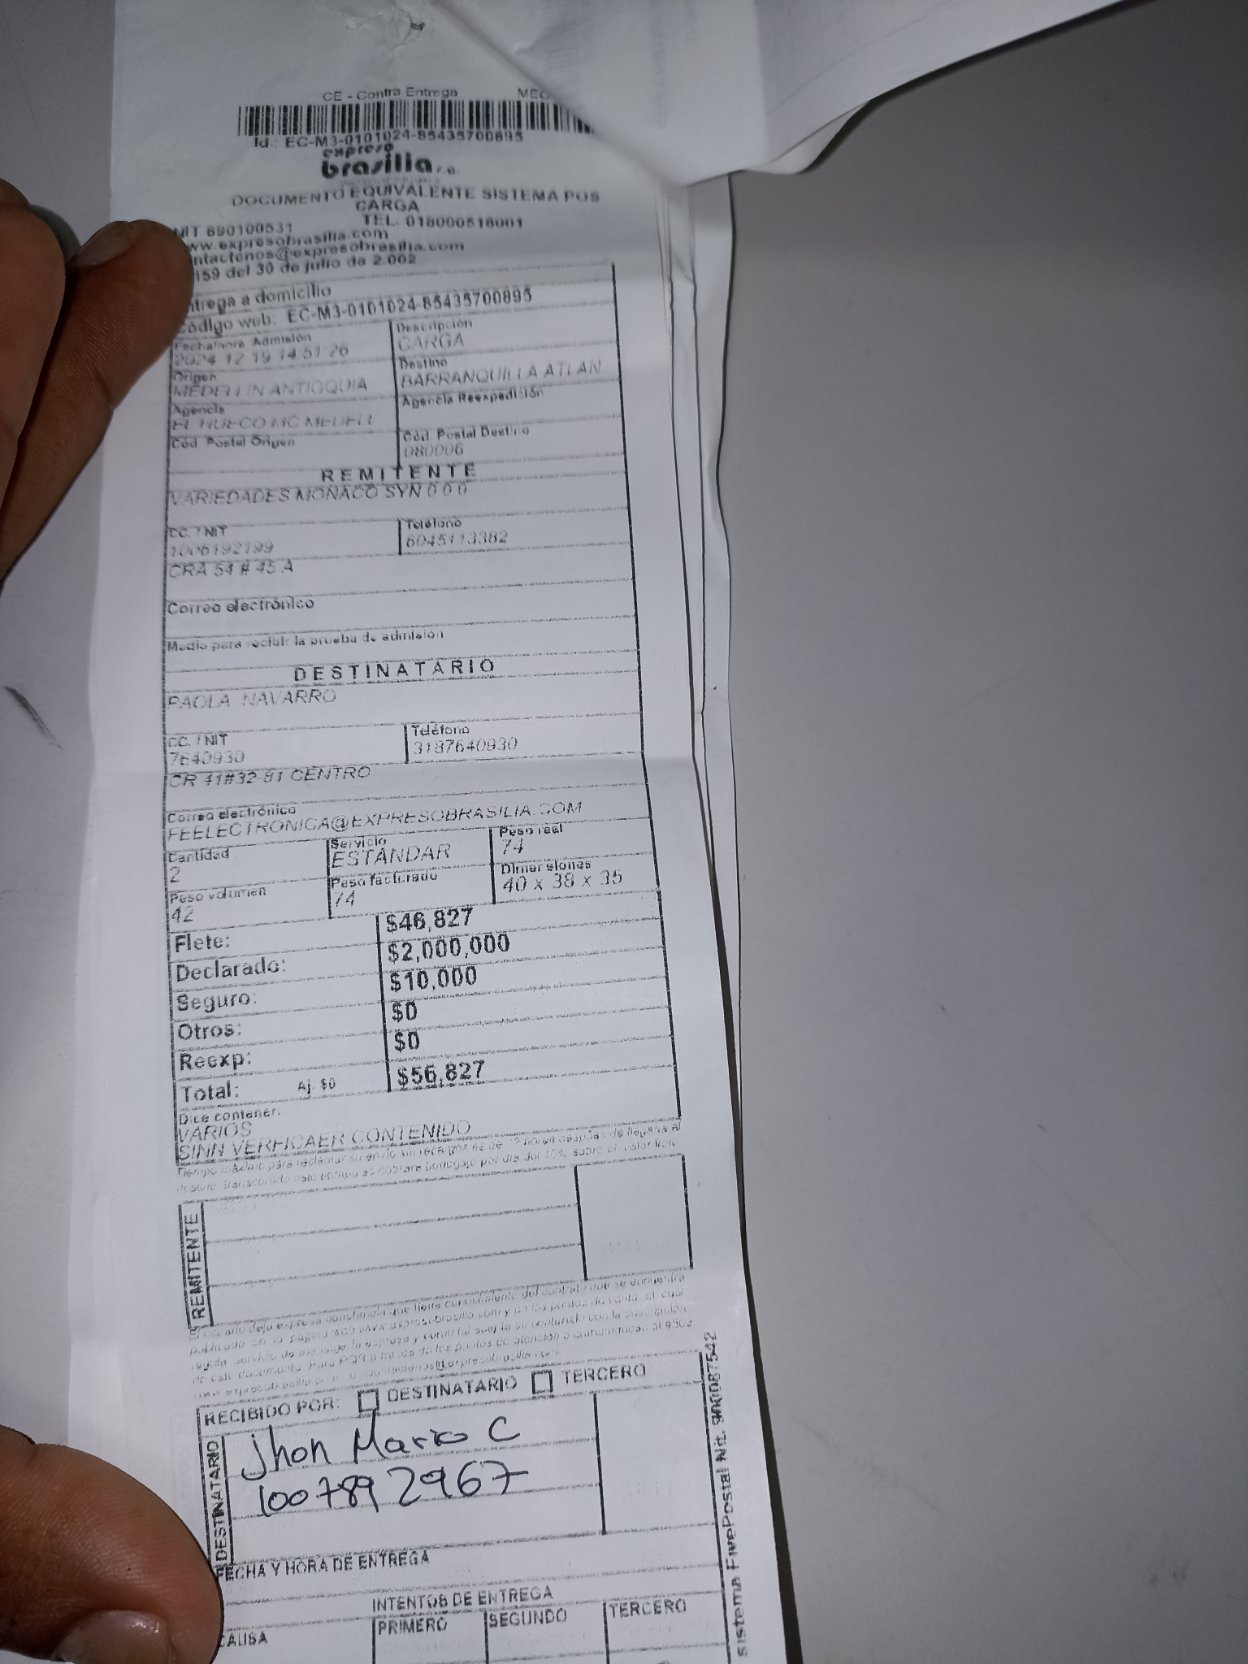 CE - Contra Entrega
Id.: EC-M3-0101024-85435700895
expreso
brasilia s.a.
DOCUMENTO EQUIVALENTE SISTEMA POS
CARGA
NIT 890100531 TEL. 018000518001
www.expresobrasilia.com
ntactenos@expresobrasilia.com
159 del 30 de julio de 2.002
ntrega a domicilio
código web: EC-M3-0101024-85435700895
Fecha/hora Admisión Descripción
2024-12-19 14:51:26 CARGA
Origen Destino
MEDELLIN ANTIOQUIA BARRANQUILLA ATLAN
Agencia Agencia Reexpedición
EL HUECO MC MEDELL
Cód. Postal Origen Cód. Postal Destino
080006
REMITENTE
VARIEDADES MONACO SYN 0 0 0
CC. / NIT Teléfono
1006192199 6045113382
CRA 54 # 45 A
Correo electrónico
Medio para recibir la prueba de admisión
DESTINATARIO
PAOLA NAVARRO
CC. / NIT Teléfono
7640930 3187640930
CR 41#32-81 CENTRO
Correo electrónico
FEELECTRONICA@EXPRESOBRASILIA.COM
Cantidad Servicio Peso real
2 ESTÁNDAR 74
Peso volumen Peso facturado Dimensiones
42 74 40 x 38 x 35
Flete: $46,827
Declarado: $2,000,000
Seguro: $10,000
Otros: $0
Reexp: $0
Total: Aj. $0 $56,827
Dice contener:
VARIOS
SINN VERFICAER CONTENIDO
REMITENTE
RECIBIDO POR: DESTINATARIO TERCERO
DESTINATARIO
Jhon Mario C
1007892967
FECHA Y HORA DE ENTREGA
INTENTOS DE ENTREGA
CAUSA PRIMERO SEGUNDO TERCERO
sistema FivePostal Nit. 900087542